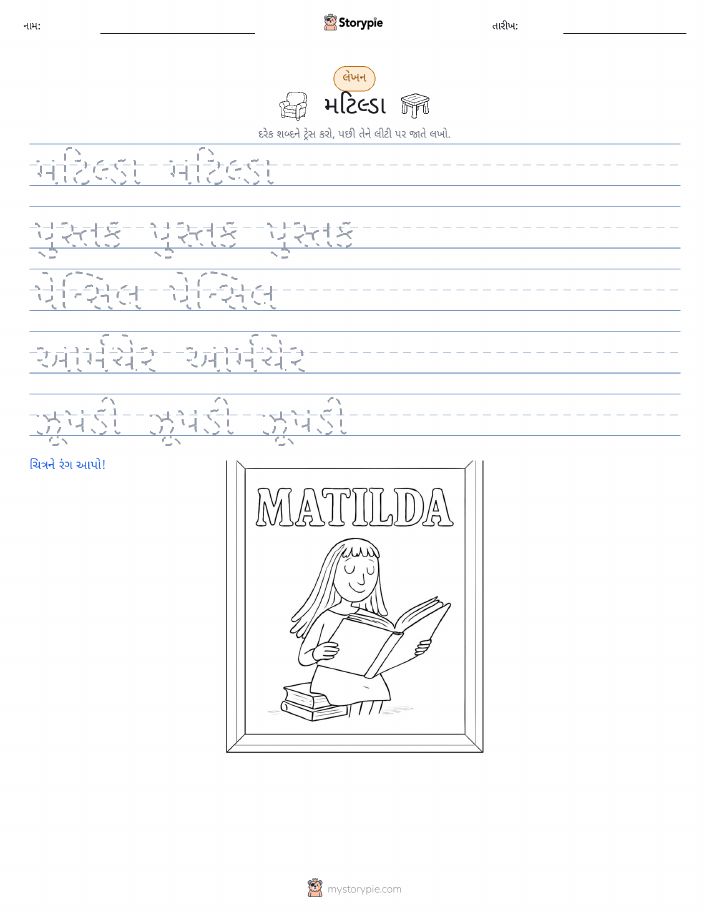 નામ: Storypie તારીખ:
લેખન
મટિલ્ડા
દરેક શબ્દને ટ્રેસ કરો, પછી તેને લીટી પર જાતે લખો.
મટિલ્ડા મટિલ્ડા
પુસ્તક પુસ્તક પુસ્તક
પેન્સિલ પેન્સિલ
આર્મચેર આર્મચેર
ઝૂંપડી ઝૂંપડી ઝૂંપડી
ચિત્રને રંગ આપો!
MATILDA
mystorypie.com